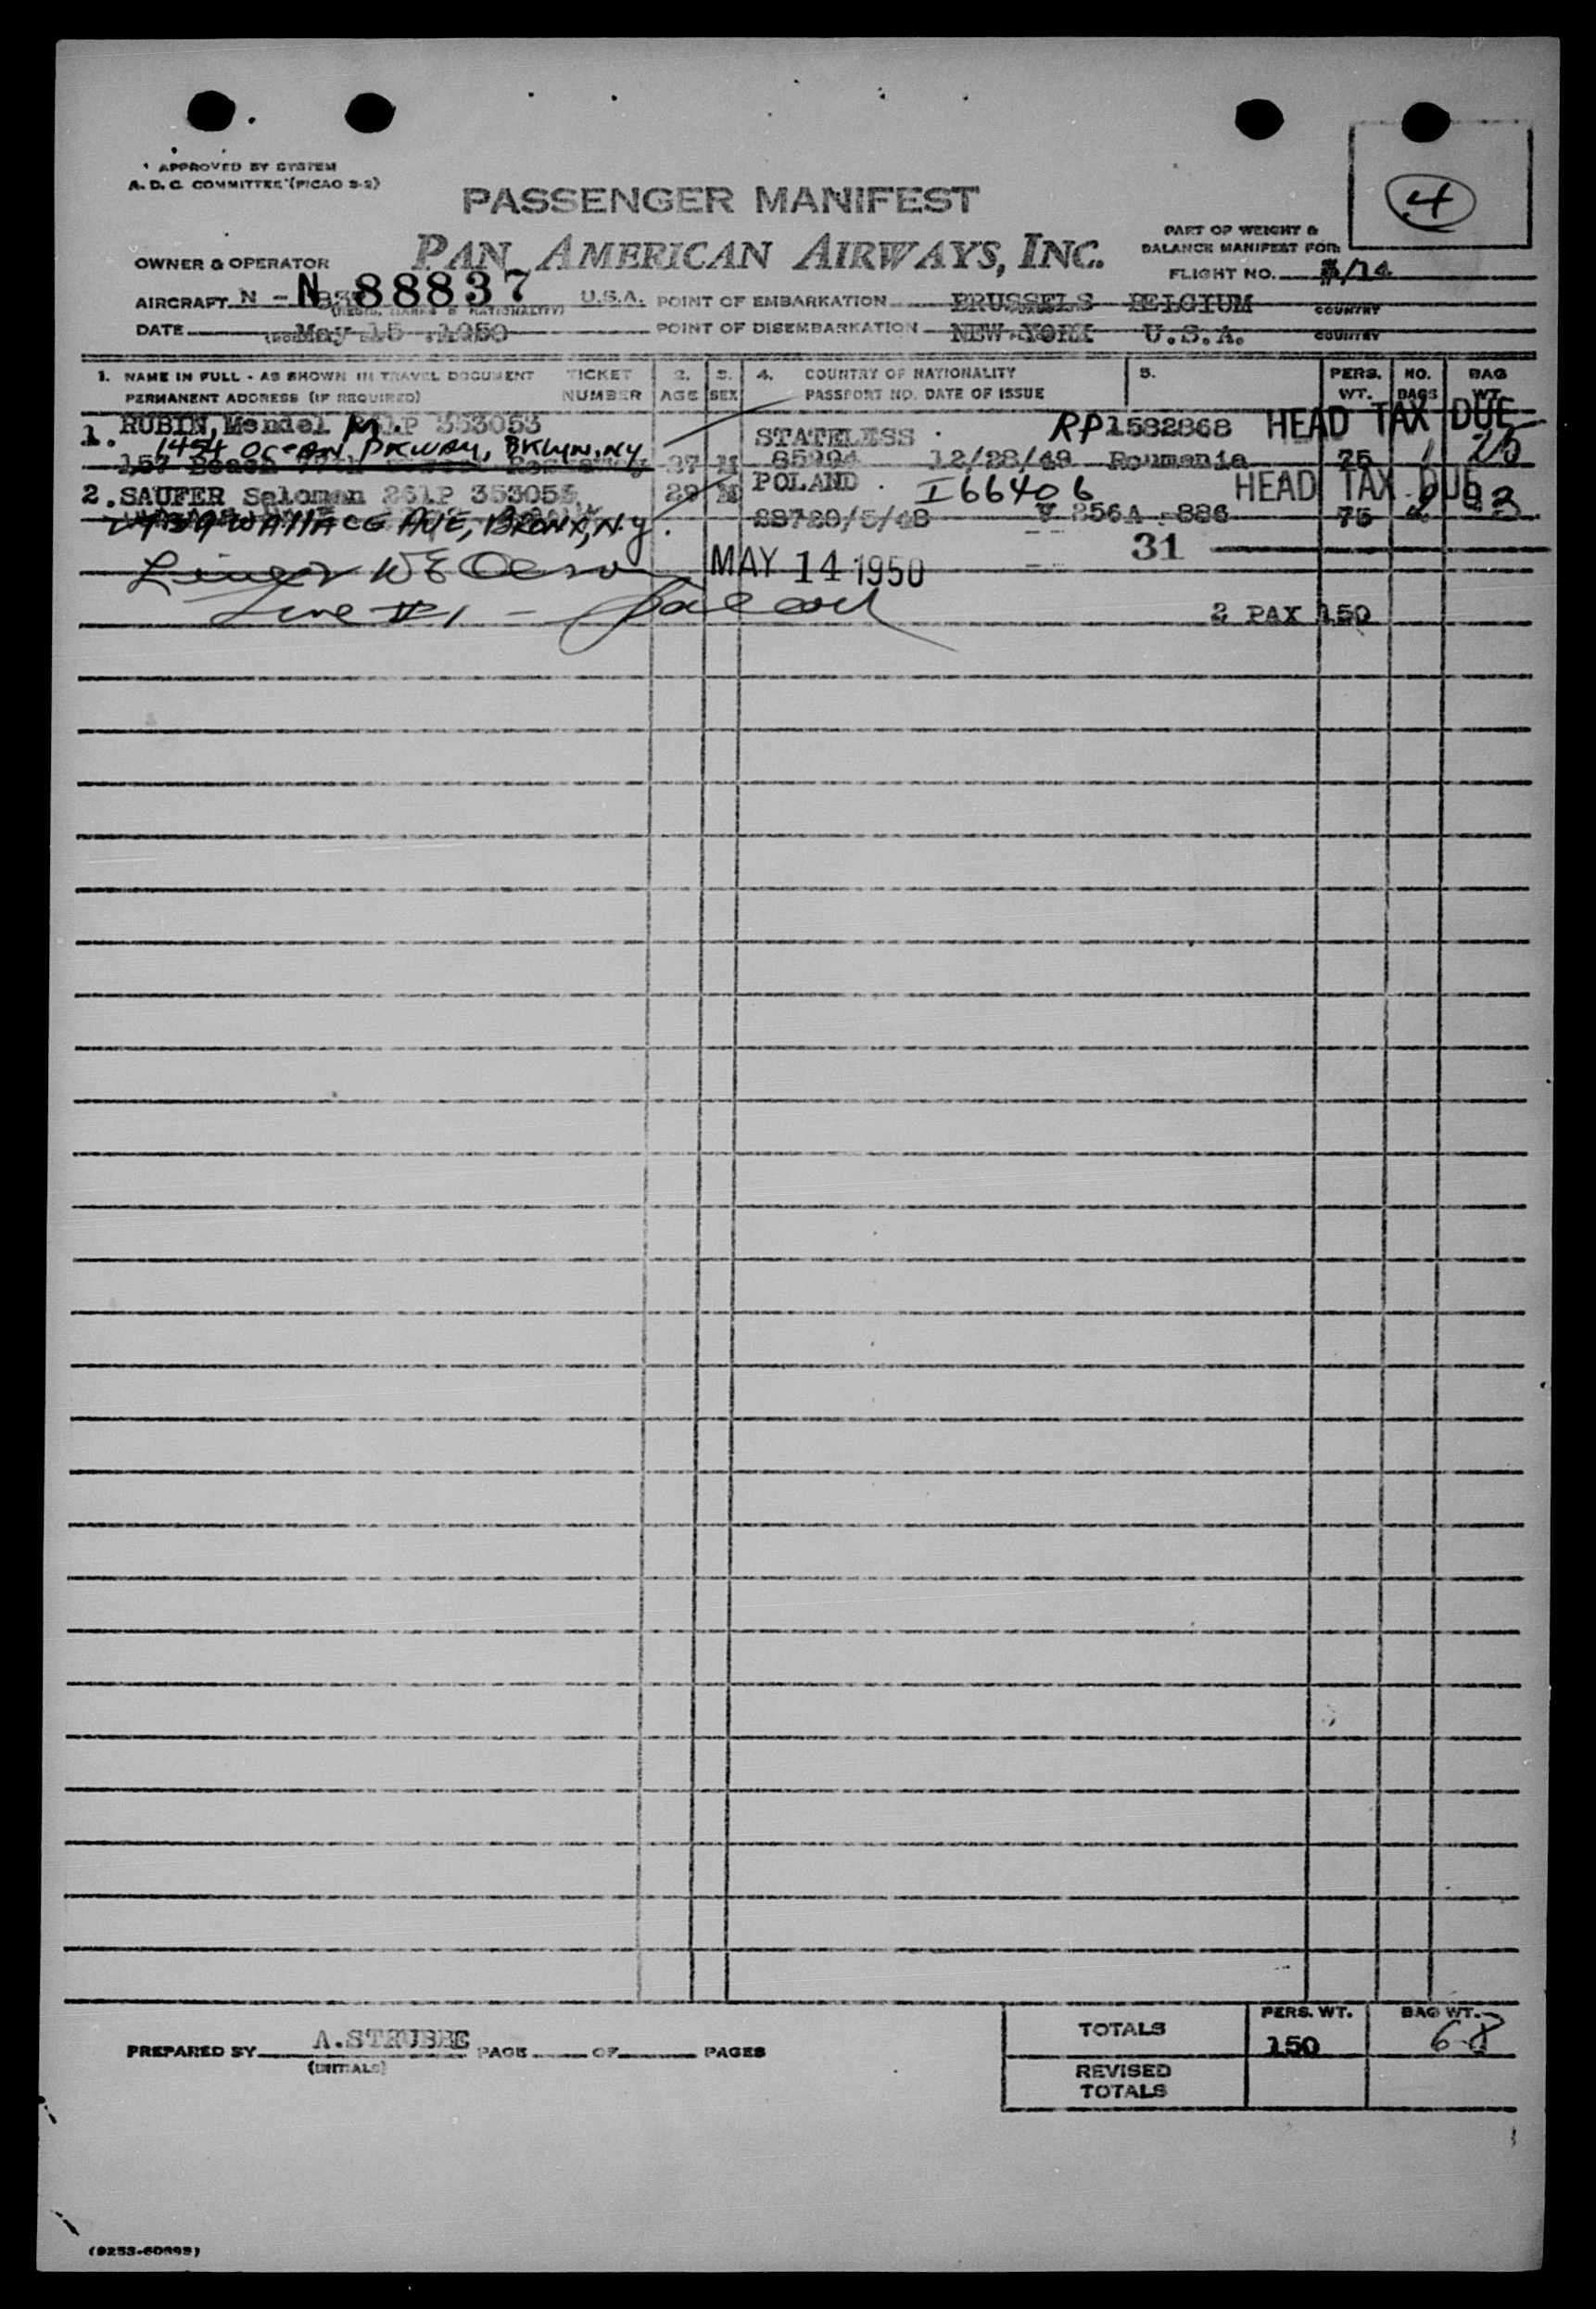 APPROVED BY SYSTEM
A. D. C. COMMITTEE (PICAO S-2)
4
PASSENGER MANIFEST
PART OF WEIGHT &
BALANCE MANIFEST FOR:
OWNER & OPERATOR PAN AMERICAN AIRWAYS, INC.
FLIGHT NO. /14
AIRCRAFT N - N 88837 U.S.A. POINT OF EMBARKATION BRUSSELS BELGIUM COUNTRY
DATE May 15 1950 POINT OF DISEMBARKATION NEW YORK U.S.A. COUNTRY
1. NAME IN FULL - AS SHOWN IN TRAVEL DOCUMENT TICKET 2. 3. 4. COUNTRY OF NATIONALITY 5. PERS. NO. BAG
PERMANENT ADDRESS (IF REQUIRED) NUMBER AGE SEX PASSPORT NO. DATE OF ISSUE WT. BAGS WT.
1. RUBIN, Mendel M. 353053 STATELESS RP1582868 HEAD TAX DUE
1454 OCEAN PKWAY, BKLYN, NY
157 Beach 37 M 85994 12/28/49 Roumania 75 1 25
2. SAUFER Saloman 261P 353055 29 M POLAND I66406 HEAD TAX DUE
WALLACE AVE, BRONX, NY. 20/5/48 V 256A 886 75 2 43
31
MAY 14 1950
Line #1 -
2 PAX 150
PREPARED BY A.STRUBBE PAGE OF PAGES
(INITIALS)
TOTALS PERS. WT. 150 BAG WT. 68
REVISED
TOTALS
(9253-60698)